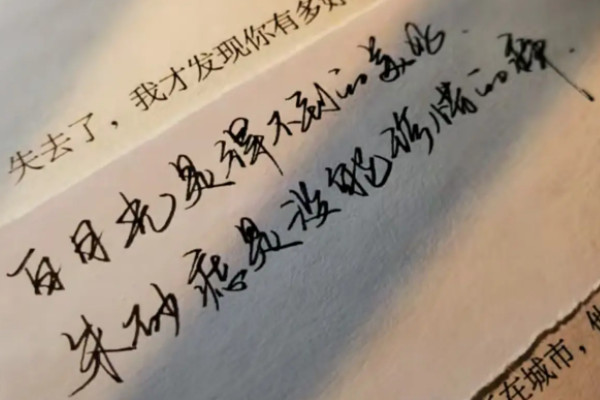 失去了，我才发现你有多好
白月光是得不到的美好.
朱砂痣是没能珍惜的
在城市，他